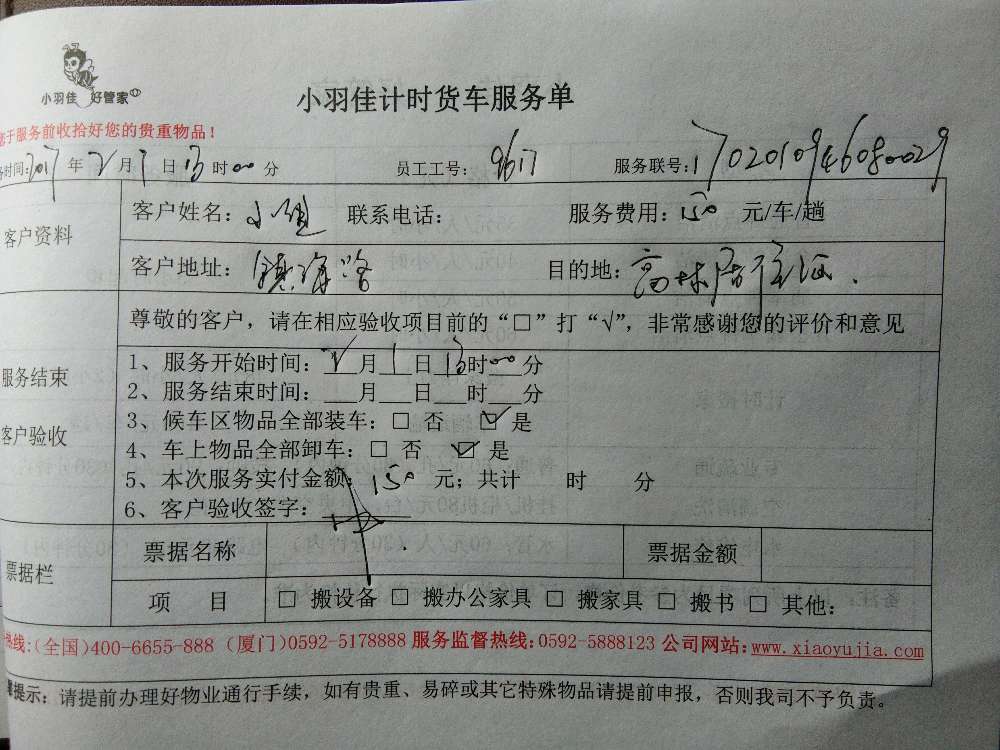 小羽佳 好管家
小羽佳计时货车服务单
于服务前收拾好您的贵重物品！
时间:2017年2月1日13时00分 员工工号: 9617 服务联号:1702010946080029
客户资料
客户姓名: 小姐 联系电话: 服务费用: 150 元/车/趟
客户地址: 镇海路 目的地: 高林居住区
尊敬的客户，请在相应验收项目前的“□”打“√”，非常感谢您的评价和意见
服务结束
客户验收
1、服务开始时间: 2月1日13时00分
2、服务结束时间:___月___日___时___分
3、候车区物品全部装车: □ 否 ☑ 是
4、车上物品全部卸车: □ 否 ☑ 是
5、本次服务实付金额: 150 元; 共计 时 分
6、客户验收签字:
票据栏
票据名称 票据金额
项 目 □ 搬设备 □ 搬办公家具 □ 搬家具 □ 搬书 □ 其他:
热线:(全国)400-6655-888 (厦门)0592-5178888 服务监督热线:0592-5888123 公司网站:www.xiaoyujia.com
提示: 请提前办理好物业通行手续，如有贵重、易碎或其它特殊物品请提前申报，否则我司不予负责。